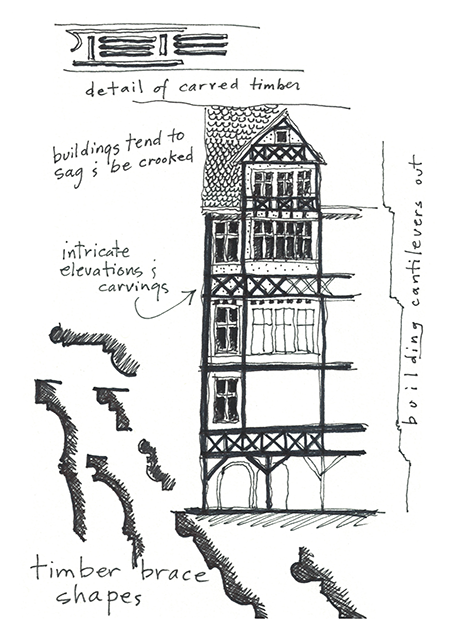 detail of carved timber
buildings tend to
sag & be crooked
intricate
elevations &
carvings
building cantilevers out
timber brace
shapes